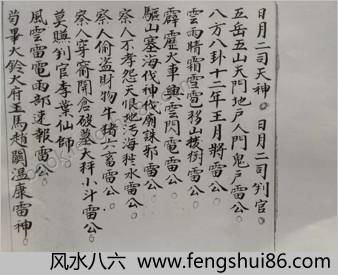 日月二司天神。日月二司判官。
五岳五山天門地戶人門鬼戶雷公。
八方八卦十二年王月將雷公。
雲雨精霜雪雹移山拔樹雷公
霹靂火車興雲閃電雷公。
驅山塞海伐神伐廟謀邪雷公。
察人不孝怨天恨地污海牲水雷公。
察人偷盜財物牛豬六畜雷公。
察人穿窬開倉破墓大秤小斗雷公。
莫賜判官李業仙師。
風雲雷電雨部速報雷公。
苟畢火鈴火府王馬趙關溫康雷神
风水八六 www.fengshui86.com